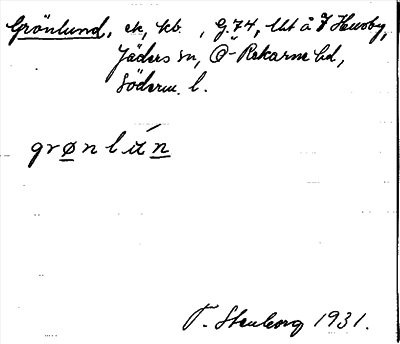 Grönlund, ek, kb. , G. 74, Ut å F Husby,
Jäders sn, Ö-Rekarne hd,
Söderm. l.
grønlún
T. Stenborg 1931.